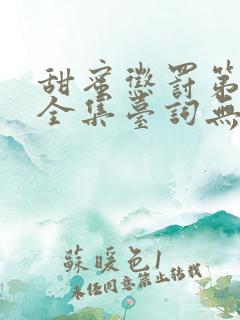 甜蜜懲罰第
全集臺詞無
蘇暖色1
未经同意禁止转载